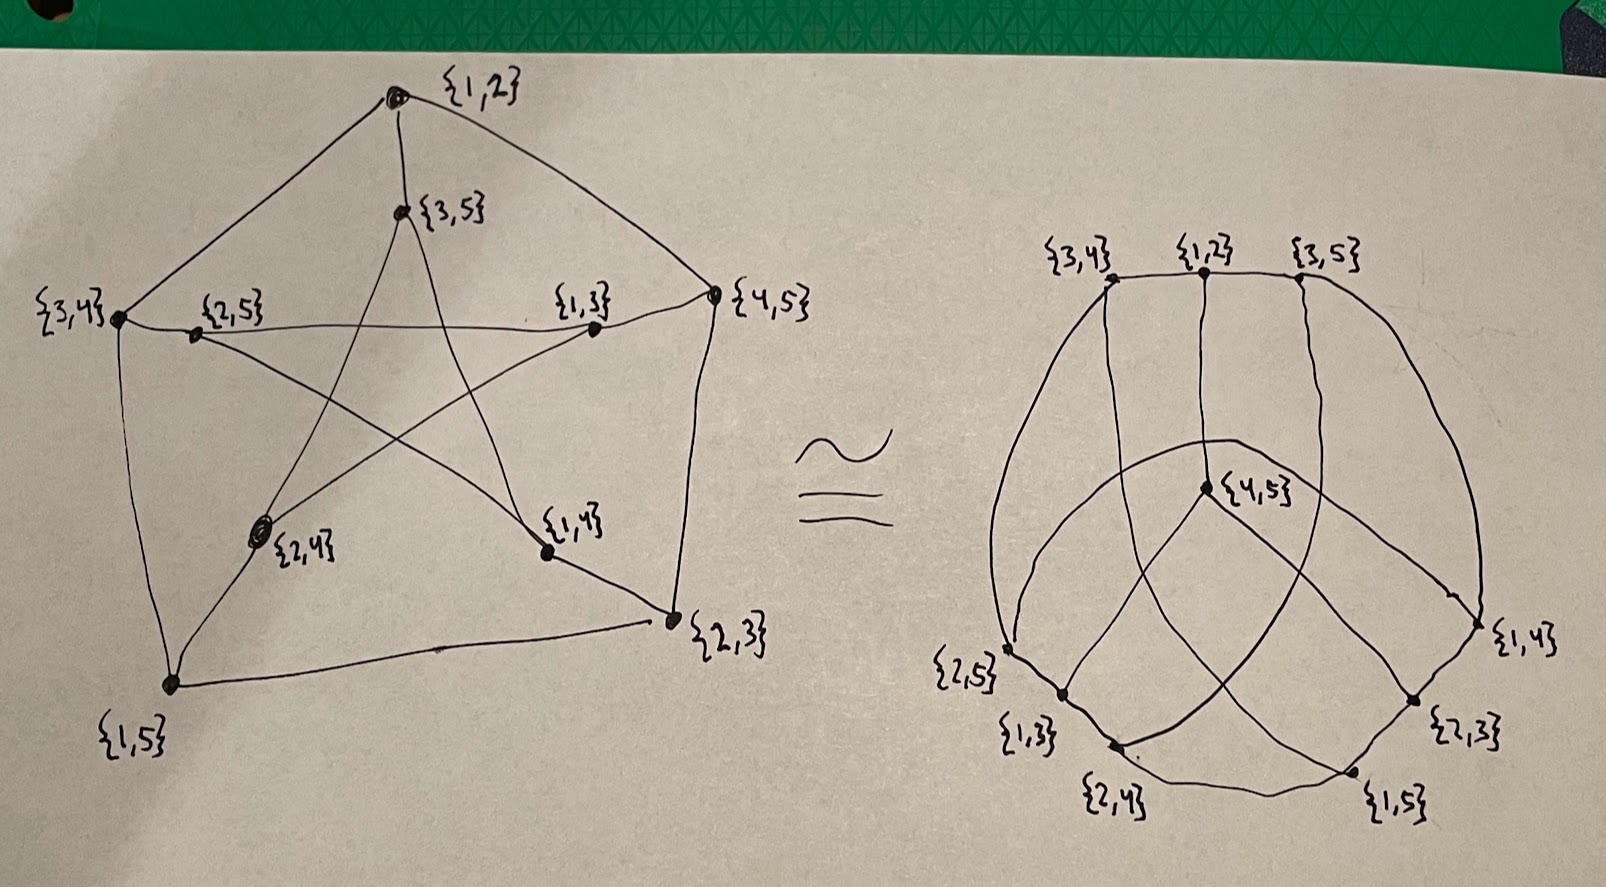 {1,2}
{3,5}
{3,4}
{2,5}
{1,3}
{4,5}
{2,4}
{1,4}
{2,3}
{1,5}
≅
{3,4}
{1,2}
{3,5}
{4,5}
{2,5}
{1,4}
{1,3}
{2,3}
{2,4}
{1,5}